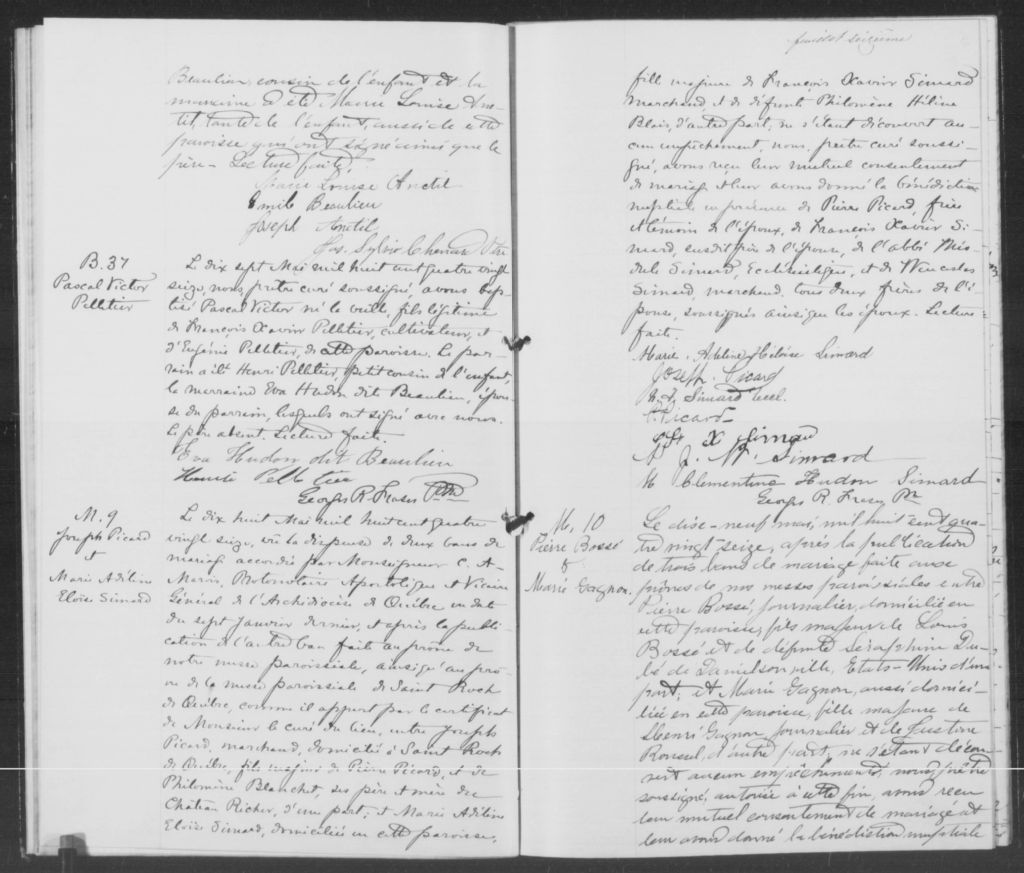 Beaulieu cousin de l'enfant et la
marraine a été Marie Louise Anc-
til, tante de l'enfant, aussi de cette
paroisse qui ont signé ainsi que le
père. Lecture faite.
Marie Louise Anctil
Emile Beaulieu
Joseph Anctil
Jos. Sylvio Chenard Ptre
B. 37
Pascal Victor
Pelletier
Le dix sept Mai mil huit cent quatre vingt
seize, nous, prêtre curé soussigné, avons bap-
tisé Pascal Victor né la veille, fils légitime
de François Xavier Pelletier, cultivateur, et
d'Eugénie Pelletier, de cette paroisse. Le par-
rain a été Henri Pelletier, petit cousin de l'enfant,
la marraine Eva Hudon dit Beaulieu, épou-
se du parrain, lesquels ont signé avec nous.
Le père absent. Lecture faite.
Eva Hudon dit Beaulieu
Henri Pelletier
Georges R. Fraser Ptre
M. 9
Joseph Picard
et
Marie Adéline
Eloïse Simard
Le dix huit Mai mil huit cent quatre
vingt seize, vu la dispense de deux bans de
mariage accordée par Monseigneur C. A.
Marois, Protonotaire Apostolique et Vicaire
Général de l'Archidiocèse de Québec en date
du sept Janvier dernier, et après la publi-
cation de l'autre ban fait au prône de
notre messe paroissiale, ainsi qu'au prô-
ne de la messe paroissiale de Saint Roch
de Québec, comme il appert par le certificat
de Monsieur le curé du lieu, entre Joseph
Picard, marchand, domicilié à Saint Roch
de Québec, fils majeur de Pierre Picard, et de
Philomène Blanchet, ses père et mère de
Château Richer, d'une part; et Marie Adéline
Eloïse Simard, domiciliée en cette paroisse,
feuillet seizième
fille majeure de François Xavier Simard
Marchand, et de défunte Philomène Hélène
Blais, d'autre part, ne s'étant découvert au-
cun empêchement, nous, prêtre curé soussi-
gné, avons reçu leur mutuel consentement
de mariage et leur avons donné la bénédiction
nuptiale en présence de Pierre Picard, frère
et témoin de l'époux, de François Xavier Si-
mard, susdit père de l'épouse, de l'abbé
Simard, Ecclésiastique, et de Wenceslas
Simard, marchand, tous deux frères de l'é-
pouse, soussignés ainsi que les époux. Lecture
faite.
Marie Adeline Héloïse Simard
Joseph Picard
Simard eccl.
P. Picard
Frs X Simard
J. W. Simard
M Clementine Hudon Simard
Georges R. Fraser Ptr
M. 10
Pierre Bossé
&
Marie Gagnon.
Le dise-neuf mai, mil huit-sent qua-
tre vingt-seize, après la publication
de trois bans de mariage faite aux
prônes de nos messes paroissiales entre
Pierre Bossé, journalier, domicilié en
cette paroisse, fils majeur de Louis
Bossé et de défunte Séraphine Du-
bé de Danielsonville, Etats-Unis d'une
part; et Marie Gagnon, aussi domici-
liée en cette paroisse, fille majeure de
Henri Gagnon journalier et de Justine
Roussel, d'autre part; ne s'étant décou-
vert aucun empêchement, nous, prêtre
soussigné, autorisé à cette fin, avons reçu
leur mutuel consentement de mariage et
leur avons donné la bénédiction nuptiale